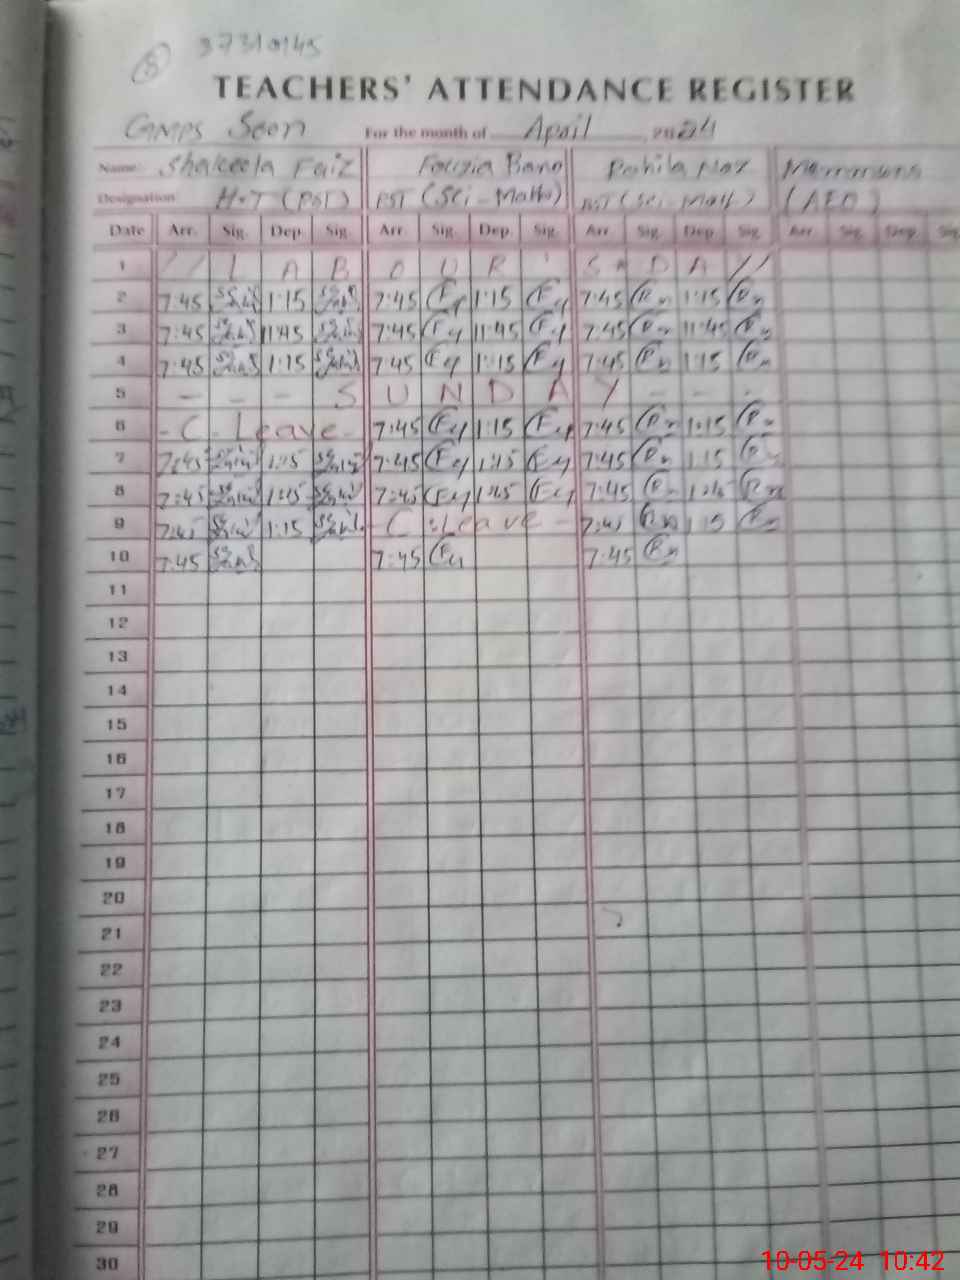 5 37310145
TEACHERS' ATTENDANCE REGISTER
GMPS Seon For the month of April 2024
Name: Shakeela Faiz Fouzia Bano Rahila Naz
Designation: H.T (PST) PST (Sci-Math) PST (Sci-Math) (AEO)
Date Arr. Sig. Dep. Sig. Arr. Sig. Dep. Sig. Arr. Sig. Dep. Sig. Arr. Sig. Dep. Sig.
1 // L A B O U R ' S DAY //
2 7:45 1:15 7:45 1:15 7:45 1:15
3 7:45 11:45 7:45 11:45 7:45 11:45
4 7:45 1:15 7:45 1:15 7:45 1:15
5 - - - S U N D A Y - - -
6 - C. Leave - 7:45 1:15 7:45 1:15
7 7:45 1:15 7:45 1:15 7:45 1:15
8 7:45 7:45 7:45
9 7:45 1:15 - C. Leave - 7:45 1:15
10 7:45 7:45 7:45
11
12
13
14
15
16
17
18
19
20
21
22
23
24
25
26
27
28
29
30
10-05-24 10:42